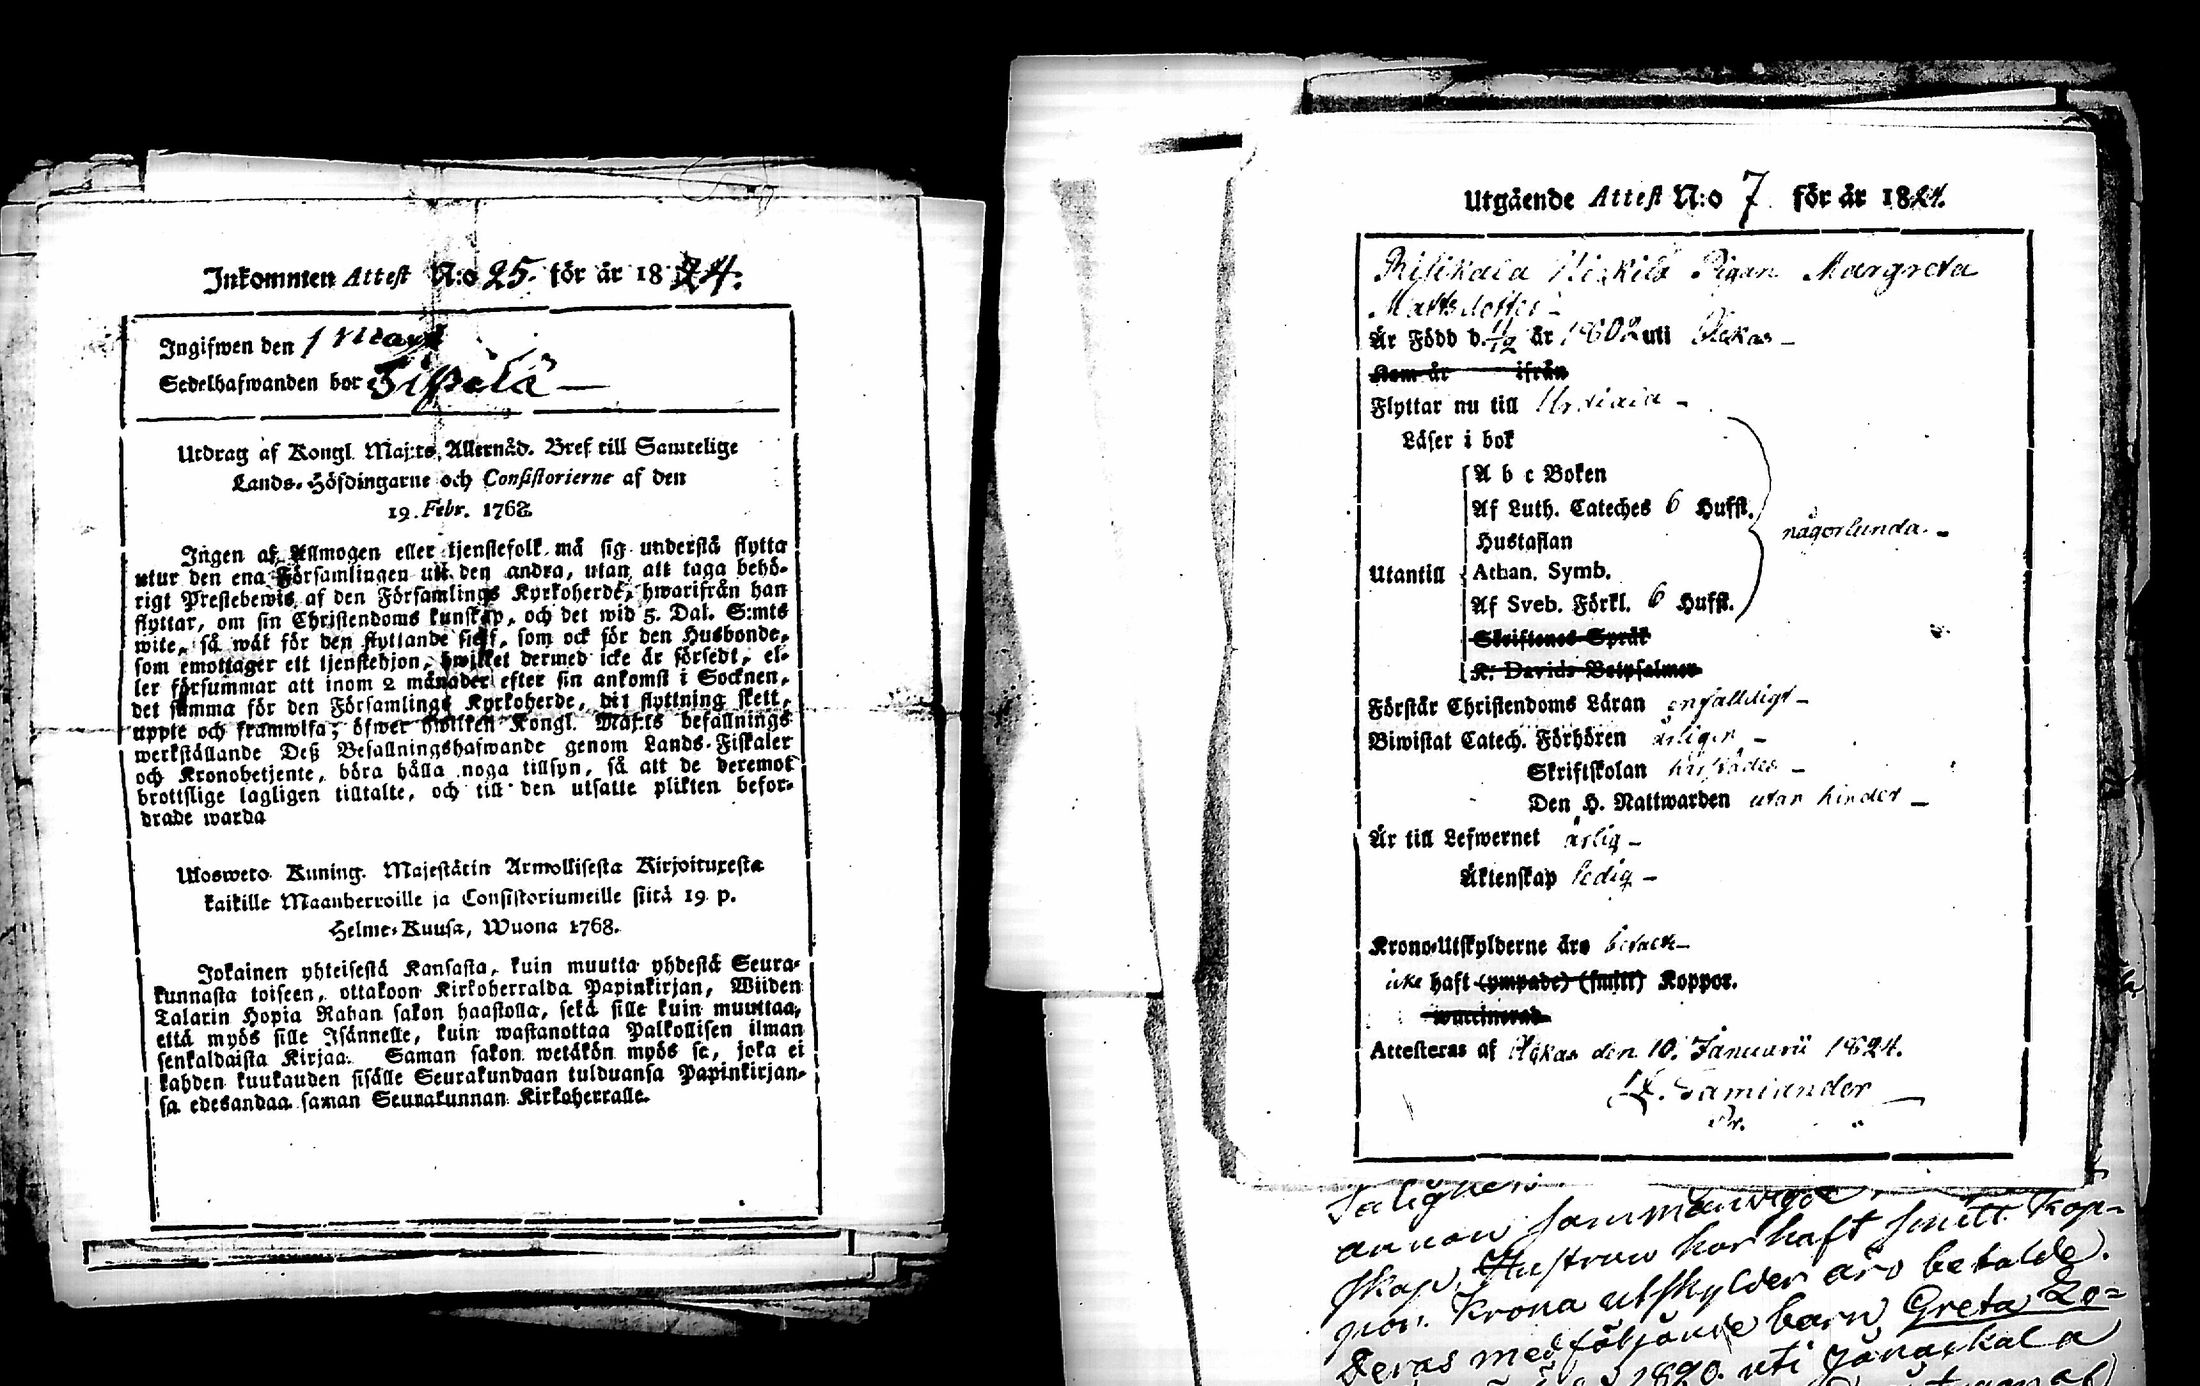 Inkommen Attest N:o 25. för år 1824.
Ingifwen den 1 Mars
Sedelhafwanden bor
Utdrag af Kongl. Maj:ts, Allernåd. Bref till Samtelige
Lands-Höfdingarne och Consistorierne af den
19. Febr. 1768.
Ingen af Allmogen eller tjenstefolk må sig understå flytta
utur den ena Församlingen uti den andra, utan att taga behö-
rigt Prestebewis af den Församlings Kyrkoherde, hwarifrån han
flyttar, om sin Christendoms kunskap, och det wid 5. Dal. S:mts
wite, så wäl för den flyttande sielf, som ock för den Husbonde,
som emottager ett tjenstehjon, hwilket dermed icke är försedt, el-
ler försummar att inom 2 månader efter sin ankomst i Socknen,
det samma för den Församlings Kyrkoherde, dit flyttning skett,
uppte och framwisa; öfwer hwilken Kongl. Maj:ts befallnings
werkställande Deß Befallningshafwande genom Lands-Fiskaler
och Kronobetjente, böra hålla noga tillsyn, så att de deremot
brottslige lagligen tilltalte, och till den utsatte plikten befor-
drade warda
Ulosweto Kuning. Majestätin Armollisesta Kirjoituxesta
kaikille Maanherroille ja Consistoriumeille siitä 19 p.
Helme-Kuusa, Wuona 1768.
Jokainen yhteisestä Kansasta, kuin muutta yhdestä Seura-
kunnasta toiseen, ottakoon Kirkoherralda Papinkirjan, Wiiden
Talarin Hopia Rahan sakon haastolla, sekä sille kuin muuttaa,
että myös sille Isännelle, kuin wastanottaa Palkollisen ilman
senkaldaista Kirjaa. Saman sakon wetäkön myös se, joka ei
kahden kuukauden sisälle Seurakundaan tulduansa Papinkirjan-
sa edesandaa saman Seurakunnan Kirkoherralle.
Utgående Attest N:o 7 för år 1824.
Pigan Margreta
Mattsdotter
Är Född d. 1/12 år 1802 uti
Kom år ifrån
Flyttar nu till Urdiala
Läser i bok
A b c Boken
Af Luth. Cateches 6 Hufst.
någorlunda
Hustaflan
Utantill Athan. Symb.
Af Sveb. Förkl. 6 Hufst.
Skriftenes Språk
K. Davids Botpsalmer
Förstår Christendoms Läran enfaldigt
Biwistat Catech. Förhören årligen
Skriftskolan
Den H. Nattwarden utan hinder
Är till Lefwernet ärlig
Äktenskap ledig
Krono-Utskylderne äro betalte
icke haft (ympade) (smitt) Koppor.
waccinerad
Attesteras af den 10. Januarii 1824.
Pr.
annan
skap, Hustrun har haft smitt. Kop-
por. Krona utskylder äro betalde.
Deras medföljande barn Greta Lo-
1820. uti Janackala